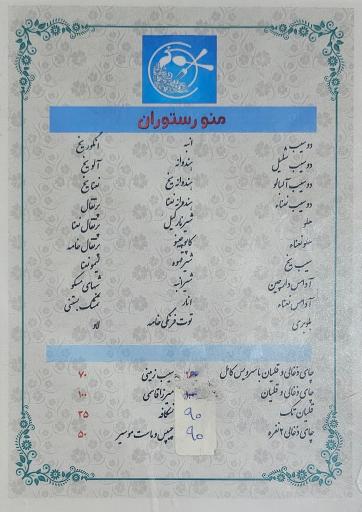 منو رستوران
دو سیب انبه انگور یخ
دو سیب شلیل هندوانه آلو یخ
دو سیب آلبالو هندوانه یخ نعنا یخ
دو سیب نعناء هندوانه نعنا پرتقال
هلو شیر نارگیل پرتقال نعنا
هلو نعناء کاپوچینو پرتقال خامه
سیب یخ شیر قهوه لیمو نعنا
آدامس دارچین شیر انبه شبهای مسکو
آدامس نعناء انار بستنی
بلوبری توت فرنگی خامه لاو
چای ذغالی و قلیان با سرویس کامل سیب زمینی ۷۰
چای ذغالی و قلیان میرزاقاسمی ۱۰۰
قلیان تک ۹۰ نسکافه ۳۵
چای ذغالی ۲ نفره ۹۰ چیپس و ماست موسیر ۵۰